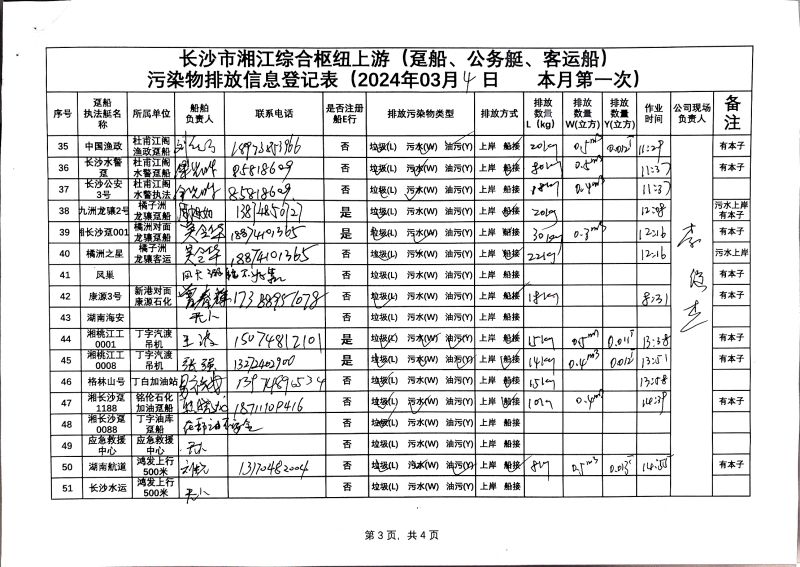 长沙市湘江综合枢纽上游（趸船、公务艇、客运船）
污染物排放信息登记表（2024年03月4日 本月第一次）
序号 趸船执法艇名称 所属单位 船舶负责人 联系电话 是否注册船E行 排放污染物类型 排放方式 排放数量L（kg） 排放数量W(立方) 排放数量Y(立方) 作业时间 公司现场负责人 备注
35 中国渔政 杜甫江阁渔政趸船 否 垃圾(L) 污水(W) 油污(Y) 上岸 船接 20kg 0.5m³ 11:29 有本子
36 长沙水警趸 杜甫江阁水警趸船 85818609 否 垃圾(L) 污水(W) 油污(Y) 上岸 船接 80kg 0.5m³ 11:37 有本子
37 长沙公安3号 杜甫江阁水警执法 85818609 否 垃圾(L) 污水(W) 油污(Y) 上岸 船接 18kg 0.4m³ 11:37 有本子
38 九洲龙骧2号 橘子洲龙骧趸船 是 垃圾(L) 污水(W) 油污(Y) 上岸 船接 20kg 污水上岸有本子
39 湘长沙趸001 橘洲对面龙骧趸船 18874101365 是 垃圾(L) 污水(W) 油污(Y) 上岸 船接 30kg 0.3m³ 12:16 有本子
40 橘洲之星 橘子洲龙骧客运 18874101365 否 垃圾(L) 污水(W) 油污(Y) 上岸 船接 22kg 12:16 污水上岸
41 凤巢 否 垃圾(L) 污水(W) 油污(Y) 上岸 船接 有本子
42 康源3号 新港对面康源石化 17388957078 否 垃圾(L) 污水(W) 油污(Y) 上岸 船接 18kg 8:31 有本子
43 湖南海安 无人 否 垃圾(L) 污水(W) 油污(Y) 上岸 船接
44 湘桃江工0001 丁字汽渡吊机 王波 15074812101 是 垃圾(L) 污水(W) 油污(Y) 上岸 船接 15kg 0.5m³ 13:38 有本子
45 湘桃江工0008 丁字汽渡吊机 张强 13272402900 是 垃圾(L) 污水(W) 油污(Y) 上岸 船接 14kg 0.4m³ 13:51 有本子
46 格林山号 丁白加油站 13974896534 否 垃圾(L) 污水(W) 油污(Y) 上岸 船接 15kg 13:58
47 湘长沙趸1188 铭伦石化加油趸船 18711109416 否 垃圾(L) 污水(W) 油污(Y) 上岸 船接 10kg 0.4m³ 14:39 有本子
48 湘长沙趸0088 丁字油库趸船 否 垃圾(L) 污水(W) 油污(Y) 上岸 船接
49 应急救援中心 应急救援中心 无人 否 垃圾(L) 污水(W) 油污(Y) 上岸 船接
50 湖南航道 鸿发上行500米 13170482004 否 垃圾(L) 污水(W) 油污(Y) 上岸 船接 8kg 0.5m³ 14:55 有本子
51 长沙水运 鸿发上行500米 无人 否 垃圾(L) 污水(W) 油污(Y) 上岸 船接
第 3 页，共 4 页